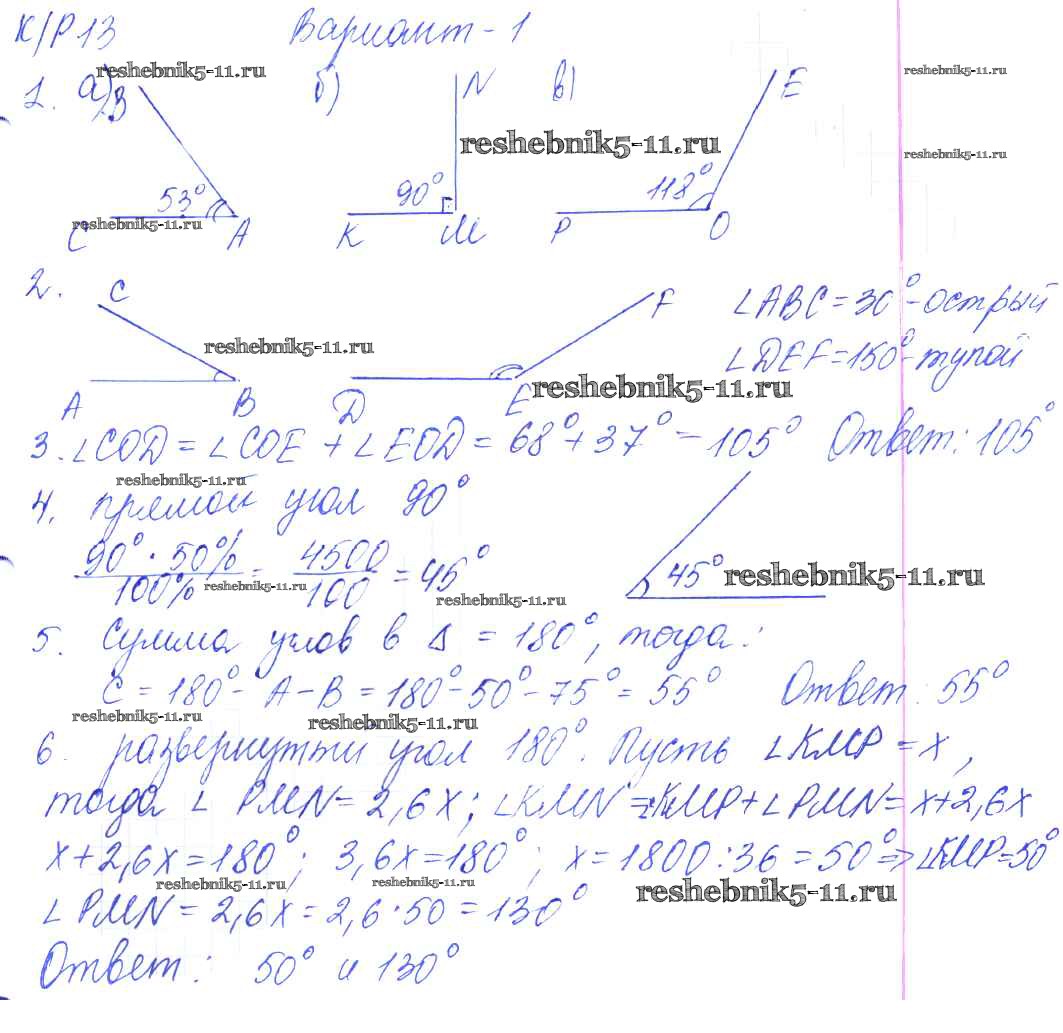 К/Р 13 Вариант - 1
reshebnik5-11.ru reshebnik5-11.ru
1. а) В б) N в) E
reshebnik5-11.ru reshebnik5-11.ru
53° 90° 118°
reshebnik5-11.ru
C A K M P O
2. C F ∠ABC = 30° - острый
reshebnik5-11.ru ∠DEF = 150° - тупой
reshebnik5-11.ru
A B D E
3. ∠COD = ∠COE + ∠EOD = 68° + 37° = 105° Ответ: 105°
reshebnik5-11.ru
4. прямой угол 90°
90° · 50% / 100% = 4500 / 100 = 45° 45° reshebnik5-11.ru
reshebnik5-11.ru reshebnik5-11.ru
5. Сумма углов в Δ = 180°, тогда:
C = 180° - A - B = 180° - 50° - 75° = 55° Ответ: 55°
reshebnik5-11.ru reshebnik5-11.ru
6. развернутти угол 180°. Пусть ∠KMP = x,
тогда ∠ PMN = 2,6x; ∠KMN = ∠KMP + ∠PMN = x + 2,6x
x + 2,6x = 180°; 3,6x = 180°; x = 1800 : 36 = 50° => ∠KMP = 50°
reshebnik5-11.ru reshebnik5-11.ru reshebnik5-11.ru
∠ PMN = 2,6x = 2,6 · 50 = 130°
Ответ: 50° и 130°